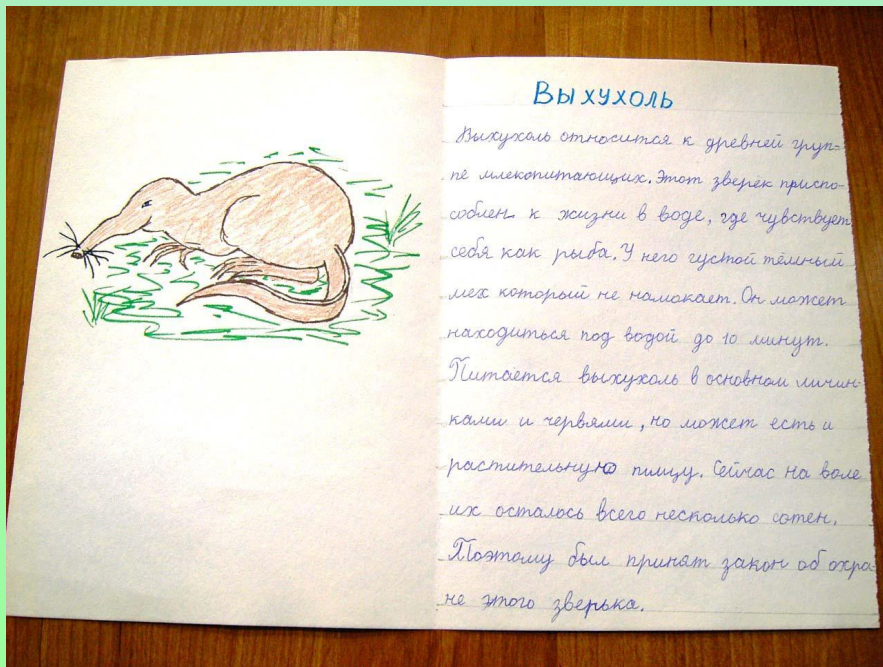 Выхухоль
Выхухоль относится к древней груп-
пе млекопитающих. Этот зверёк приспо-
соблен к жизни в воде, где чувствует
себя как рыба. У него густой тёмный
мех который не намокает. Он может
находиться под водой до 10 минут.
Питается выхухоль в основном личин-
ками и червями, но может есть и
растительную пищу. Сейчас на воле
их осталось всего несколько сотен.
Поэтому был принят закон об охра-
не этого зверька.